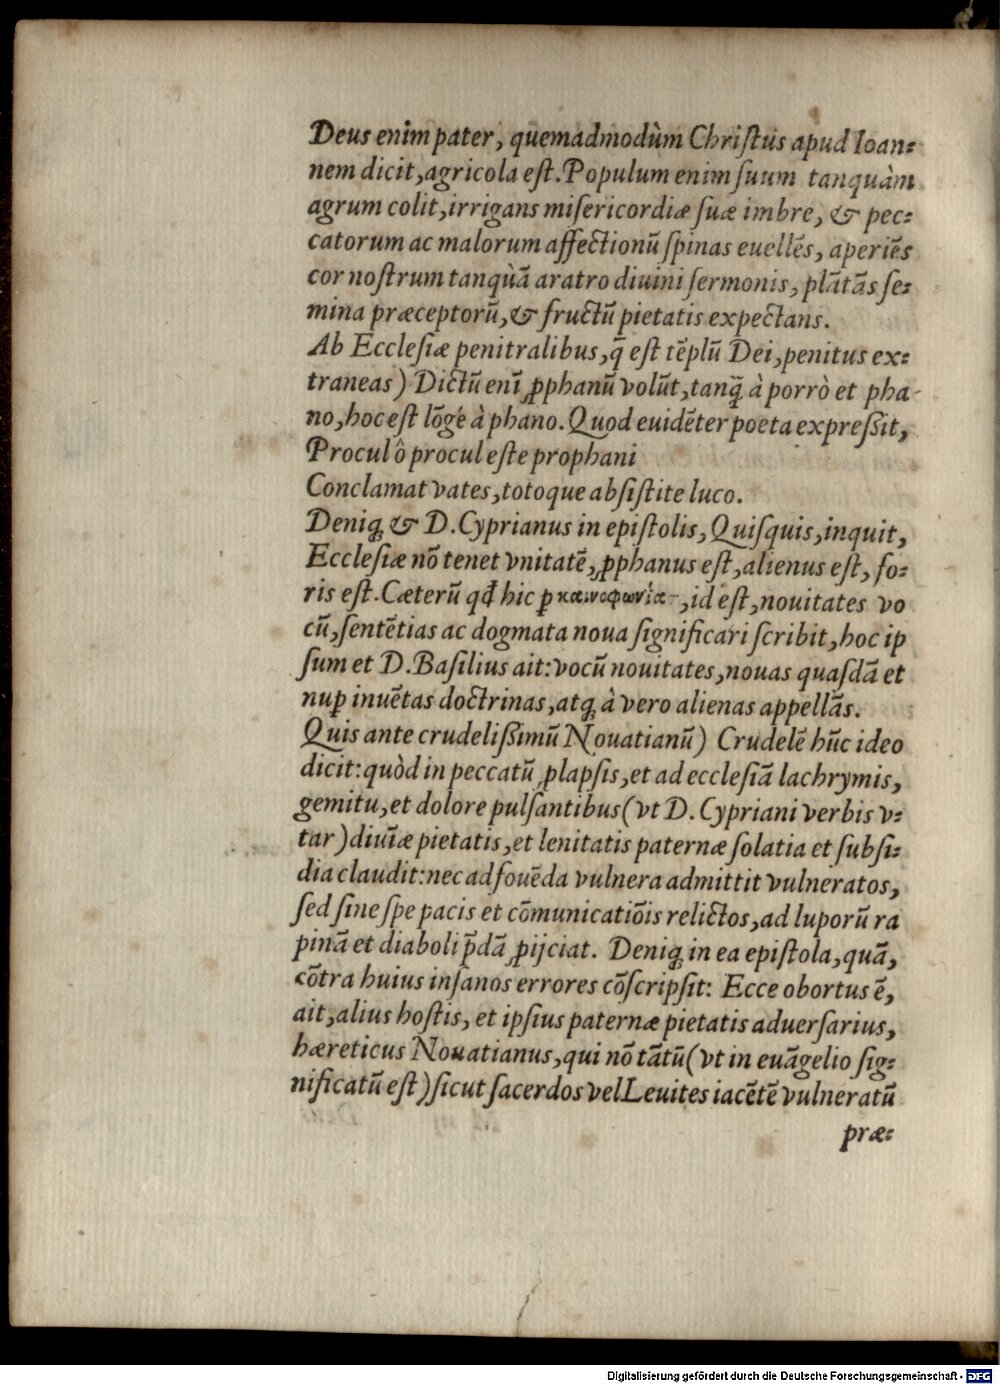 Deus enim pater, quemadmodùm Chriſtus apud Ioan⸗
nem dicit, agricola eſt. Populum enim ſuum tanquàm
agrum colit, irrigans miſericordiæ ſuæ imbre, & pec⸗
catorum ac malorum affectionũ ſpinas euellẽs, aperiẽs
cor noſtrum tanquã aratro diuini ſermonis, plãtãs ſe⸗
mina præceptorũ, & fructũ pietatis expectans.
Ab Eccleſiæ penitralibus, q̃ eſt tẽplũ Dei, penitus ex⸗
traneas) Dictũ enĩ ꝓphanũ volũt, tanq̃ à porrò et pha-
no, hoc eſt lõge à phano. Quod euidẽter poeta expreßit,
Procul ô procul eſte prophani
Conclamat vates, totoque abſiſtite luco.
Deniq; & D. Cyprianus in epiſtolis, Quiſquis, inquit,
Eccleſiæ nõ tenet vnitatẽ, ꝓphanus eſt, alienus eſt, fo⸗
ris eſt. Cæterũ qđ hic ꝑ καινοφωνία-, id eſt, nouitates vo
cũ, ſentẽtias ac dogmata noua ſignificari ſcribit, hoc ip
ſum et D. Baſilius ait: vocũ nouitates, nouas quaſdã et
nuꝑ inuẽtas doctrinas, atq; à vero alienas appellãs.
Quis ante crudelißimũ Nouatianũ) Crudelẽ hũc ideo
dicit: quòd in peccatũ ꝓlapſis, et ad eccleſiã lachrymis,
gemitu, et dolore pulſantibus (vt D. Cypriani verbis v⸗
tar) diuĩæ pietatis, et lenitatis paternæ ſolatia et ſubſi⸗
dia claudit: nec ad fouẽda vulnera admittit vulneratos,
ſed ſine ſpe pacis et cõmunicatiõis relictos, ad luporũ ra
pinã et diaboli p̃dã ꝓijciat. Deniq; in ea epiſtola, quã,
cõtra huius inſanos errores cõſcripſit: Ecce obortus ẽ,
ait, alius hoſtis, et ipſius paternæ pietatis aduerſarius,
hæreticus Nouatianus, qui nõ tãtũ (vt in euãgelio ſig⸗
nificatũ eſt) ſicut ſacerdos vel Leuites iacẽtẽ vulneratũ
præ⸗
Digitalisierung gefördert durch die Deutsche Forschungsgemeinschaft - DFG